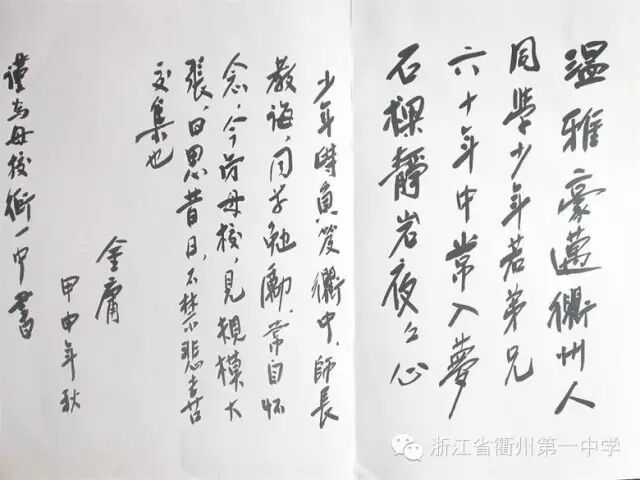 温雅豪邁衢州人
同學少年若弟兄
六十年中常入夢
石樑靜岩夜夜心
少年時負笈衢中，師長
教誨，同学勉勵，常自怀
念，今訪母校，見規模大
張，日思昔日，不禁悲喜
交集也
金庸
甲申年秋
謹為母校衢一中書
浙江省衢州第一中学